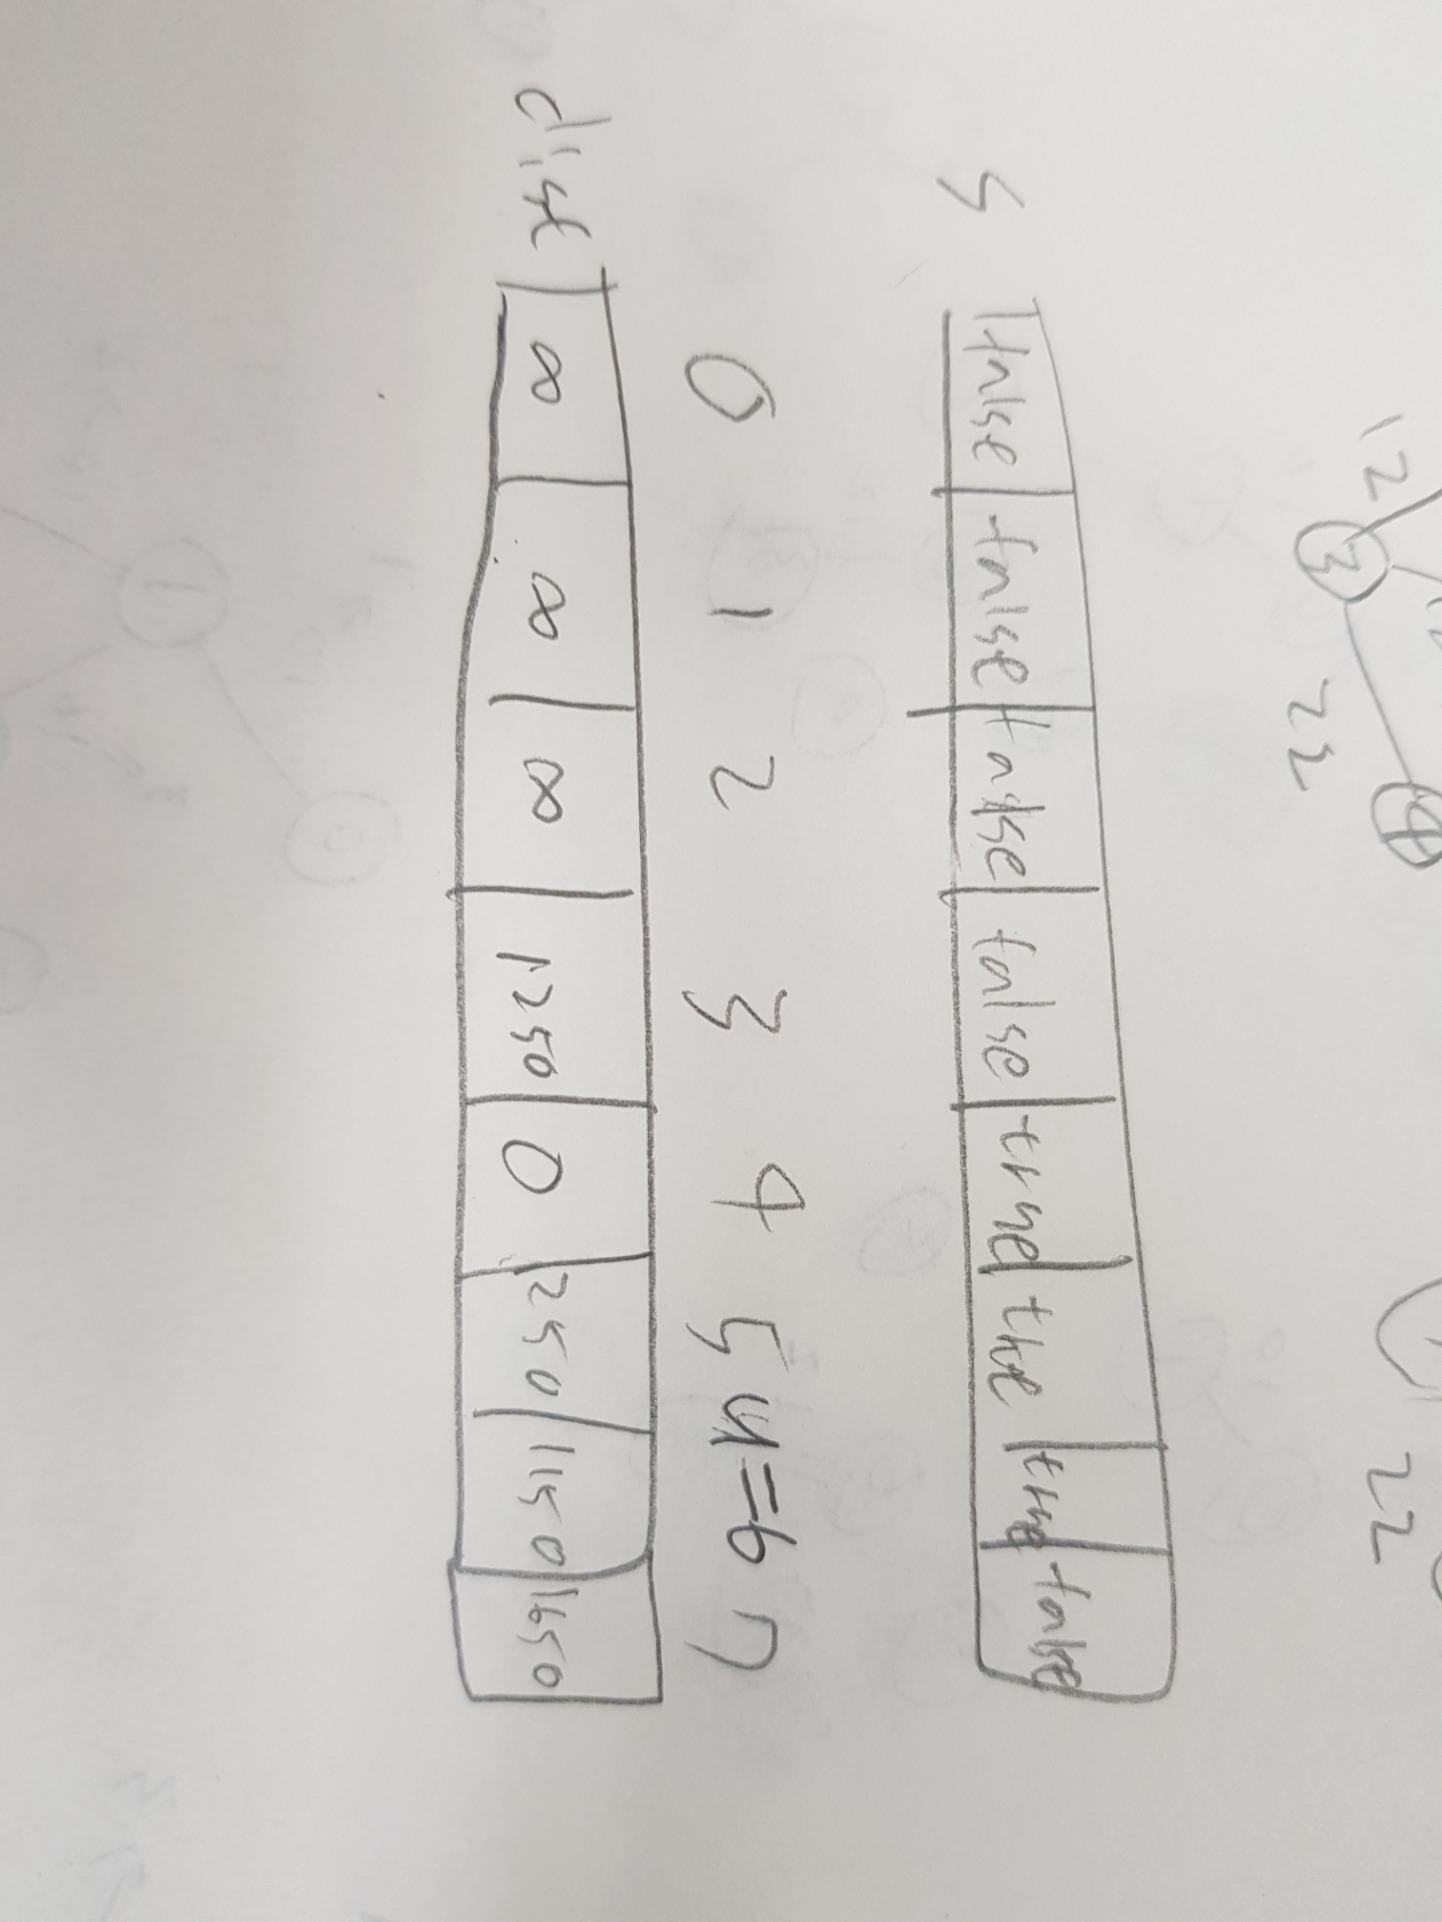 12
3
22
4
22
S false false false false true true true false
0 1 2 3 4 5 u=6 7
dist ∞ ∞ ∞ 1250 0 250 1150 1650